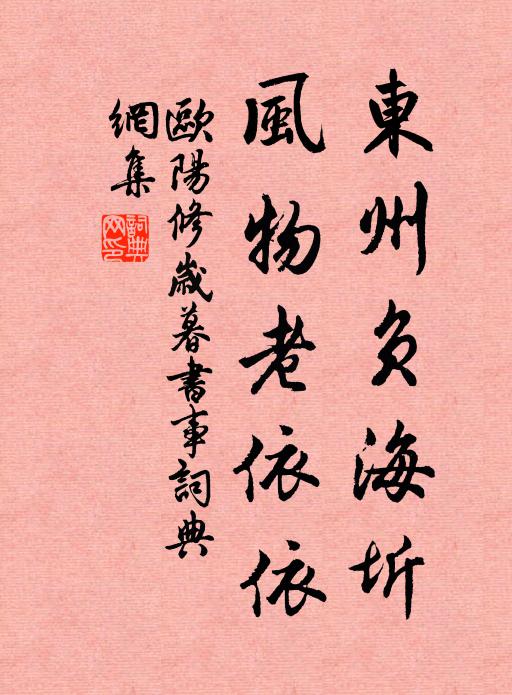 東州負海圻
風物老依依
歐陽修歲暮書事詞典
網集
詞典網印